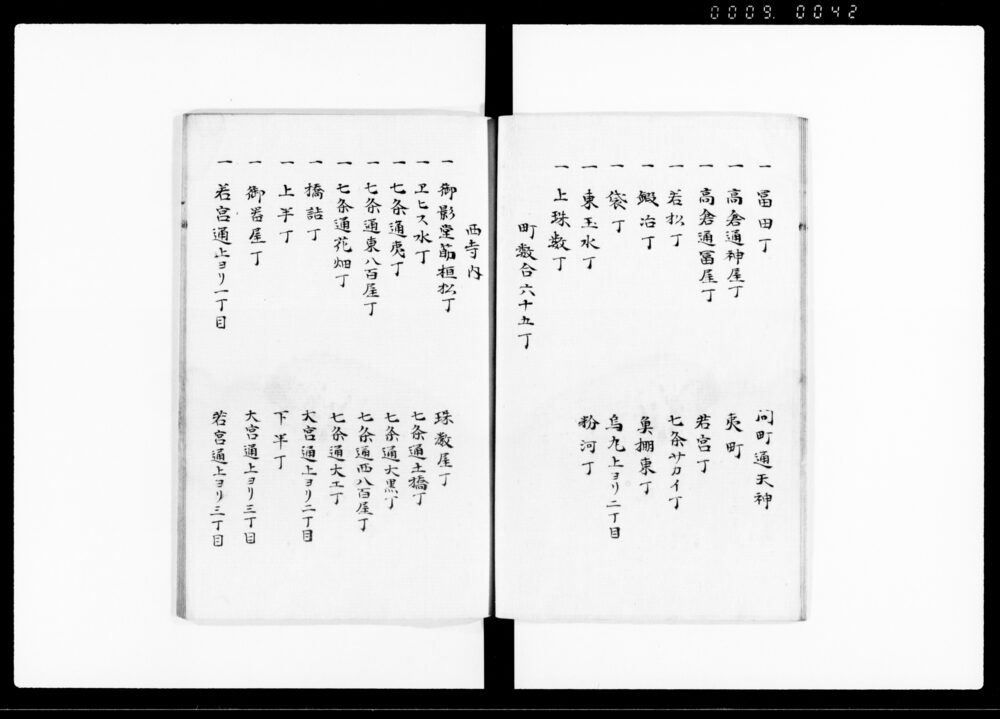 0009. 0042
一 冨田丁 問町通天神
一 高倉通神屋丁 夷町
一 高倉通冨屋丁 若宮丁
一 若松丁 七条サカイ丁
一 鍛冶丁 魚棚東丁
一 袋丁 烏丸上ヨリ二丁目
一 東玉水丁 粉河丁
一 上珠数丁
町数合六十五丁
西寺内
一 御影堂筋垣松丁 珠数屋丁
一 ヱヒス水丁 七条通土橋丁
一 七条通夷丁 七条通大黒丁
一 七条通東八百屋丁 七条通西八百屋丁
一 七条通花畑丁 七条通大工丁
一 橋詰丁 大宮通上ヨリ二丁目
一 上半丁 下半丁
一 御器屋丁 大宮通上ヨリ三丁目
一 若宮通上ヨリ一丁目 若宮通上ヨリ三丁目